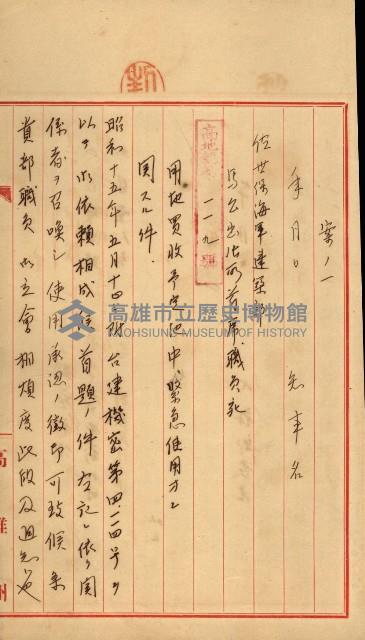 案ノ一
年月日 知事名
佐世保海軍建築部
馬公出張所首席職員宛
高地
一一九號
用地買收予定地中緊急使用方ニ
関スル件
昭和十五年五月十四日附台建機密第四、二四号ヲ
以テ御依頼相成候首題ノ件左記ニ依リ関
係者ヲ召喚シ使用承認ノ徴印可致候条
貴部職員御立會相煩度此段及通知也
高雄市立歷史博物館
KAOHSIUNG MUSEUM OF HISTORY
高雄州